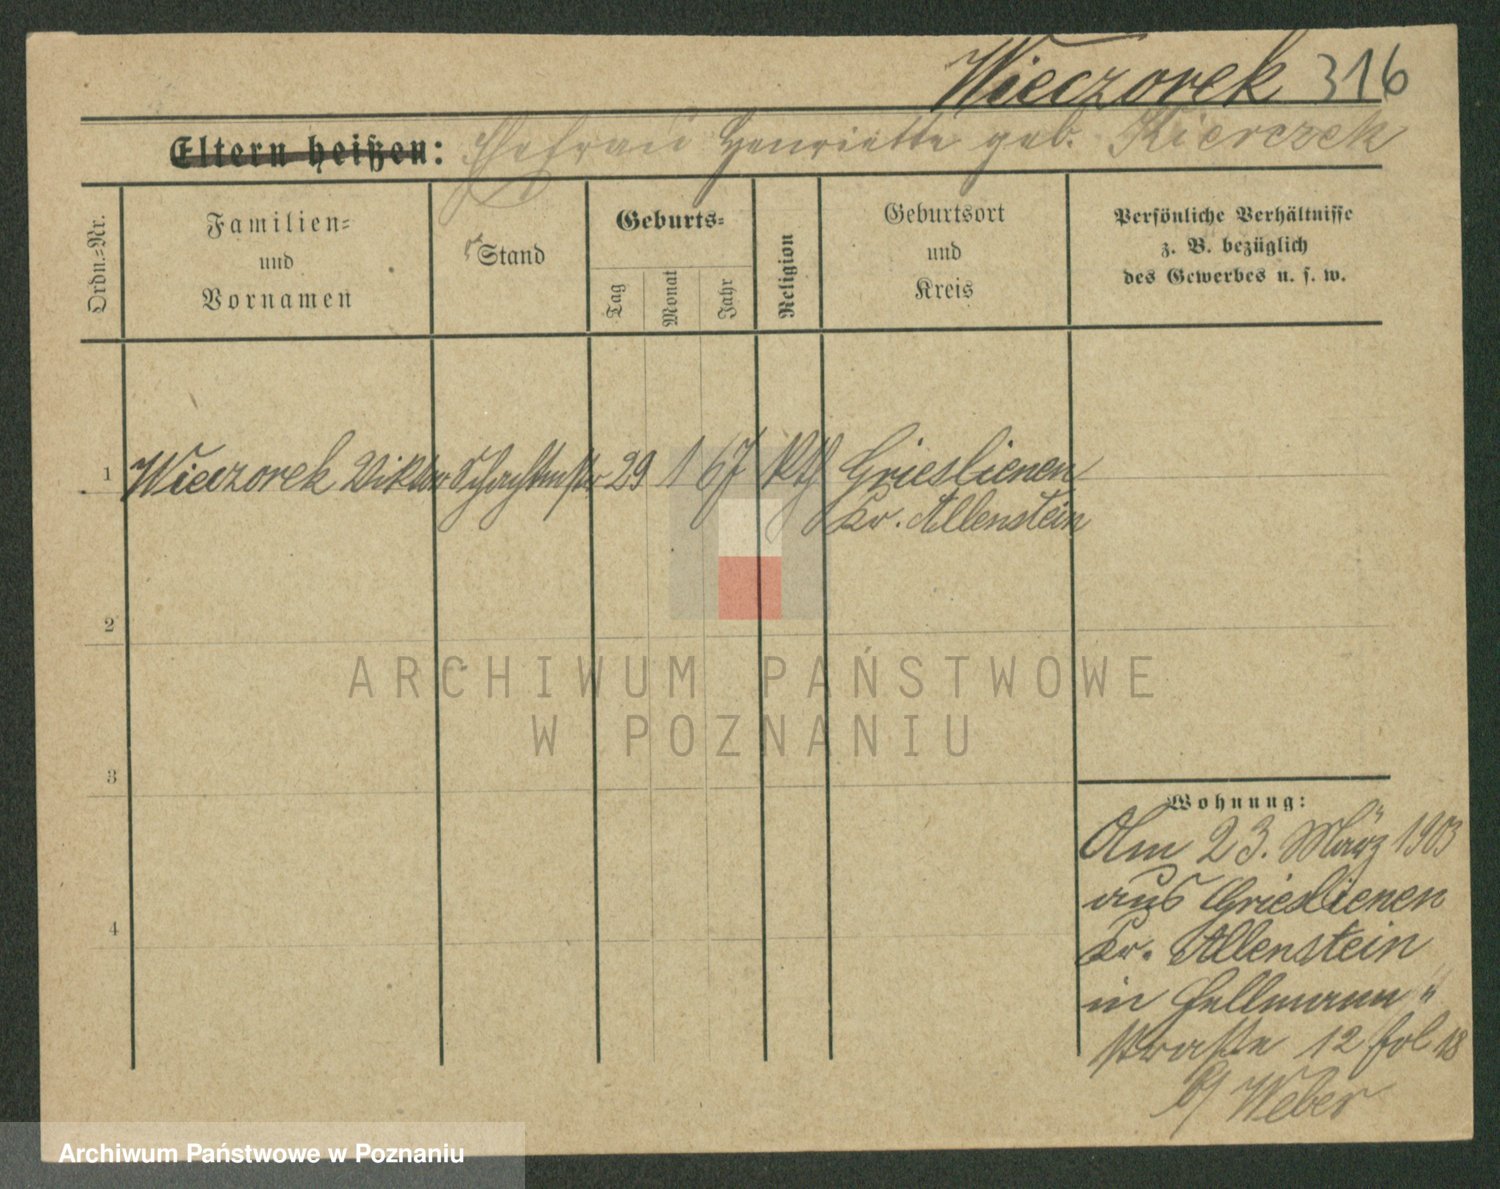 Wieczorek 316
Eltern heißen: Ehefrau Henriette geb. Kierczek
Ordn.-Nr.
Familien-
und
Vornamen
Stand
Geburts-
Tag
Monat
Jahr
Religion
Geburtsort
und
Kreis
Persönliche Verhältnisse
z. B. bezüglich
des Gewerbes u. s. w.
1 Wieczorek Viktor Schachtmstr 29 1 67 kth Grieslienen
Kr. Allenstein
2
ARCHIWUM PAŃSTWOWE
W POZNANIU
3
Wohnung:
Am 23. März 1903
aus Grieslienen
4
Kr. Allenstein
in Hellmann"
straße 12 fol 18
b/ Weber
Archiwum Państwowe w Poznaniu